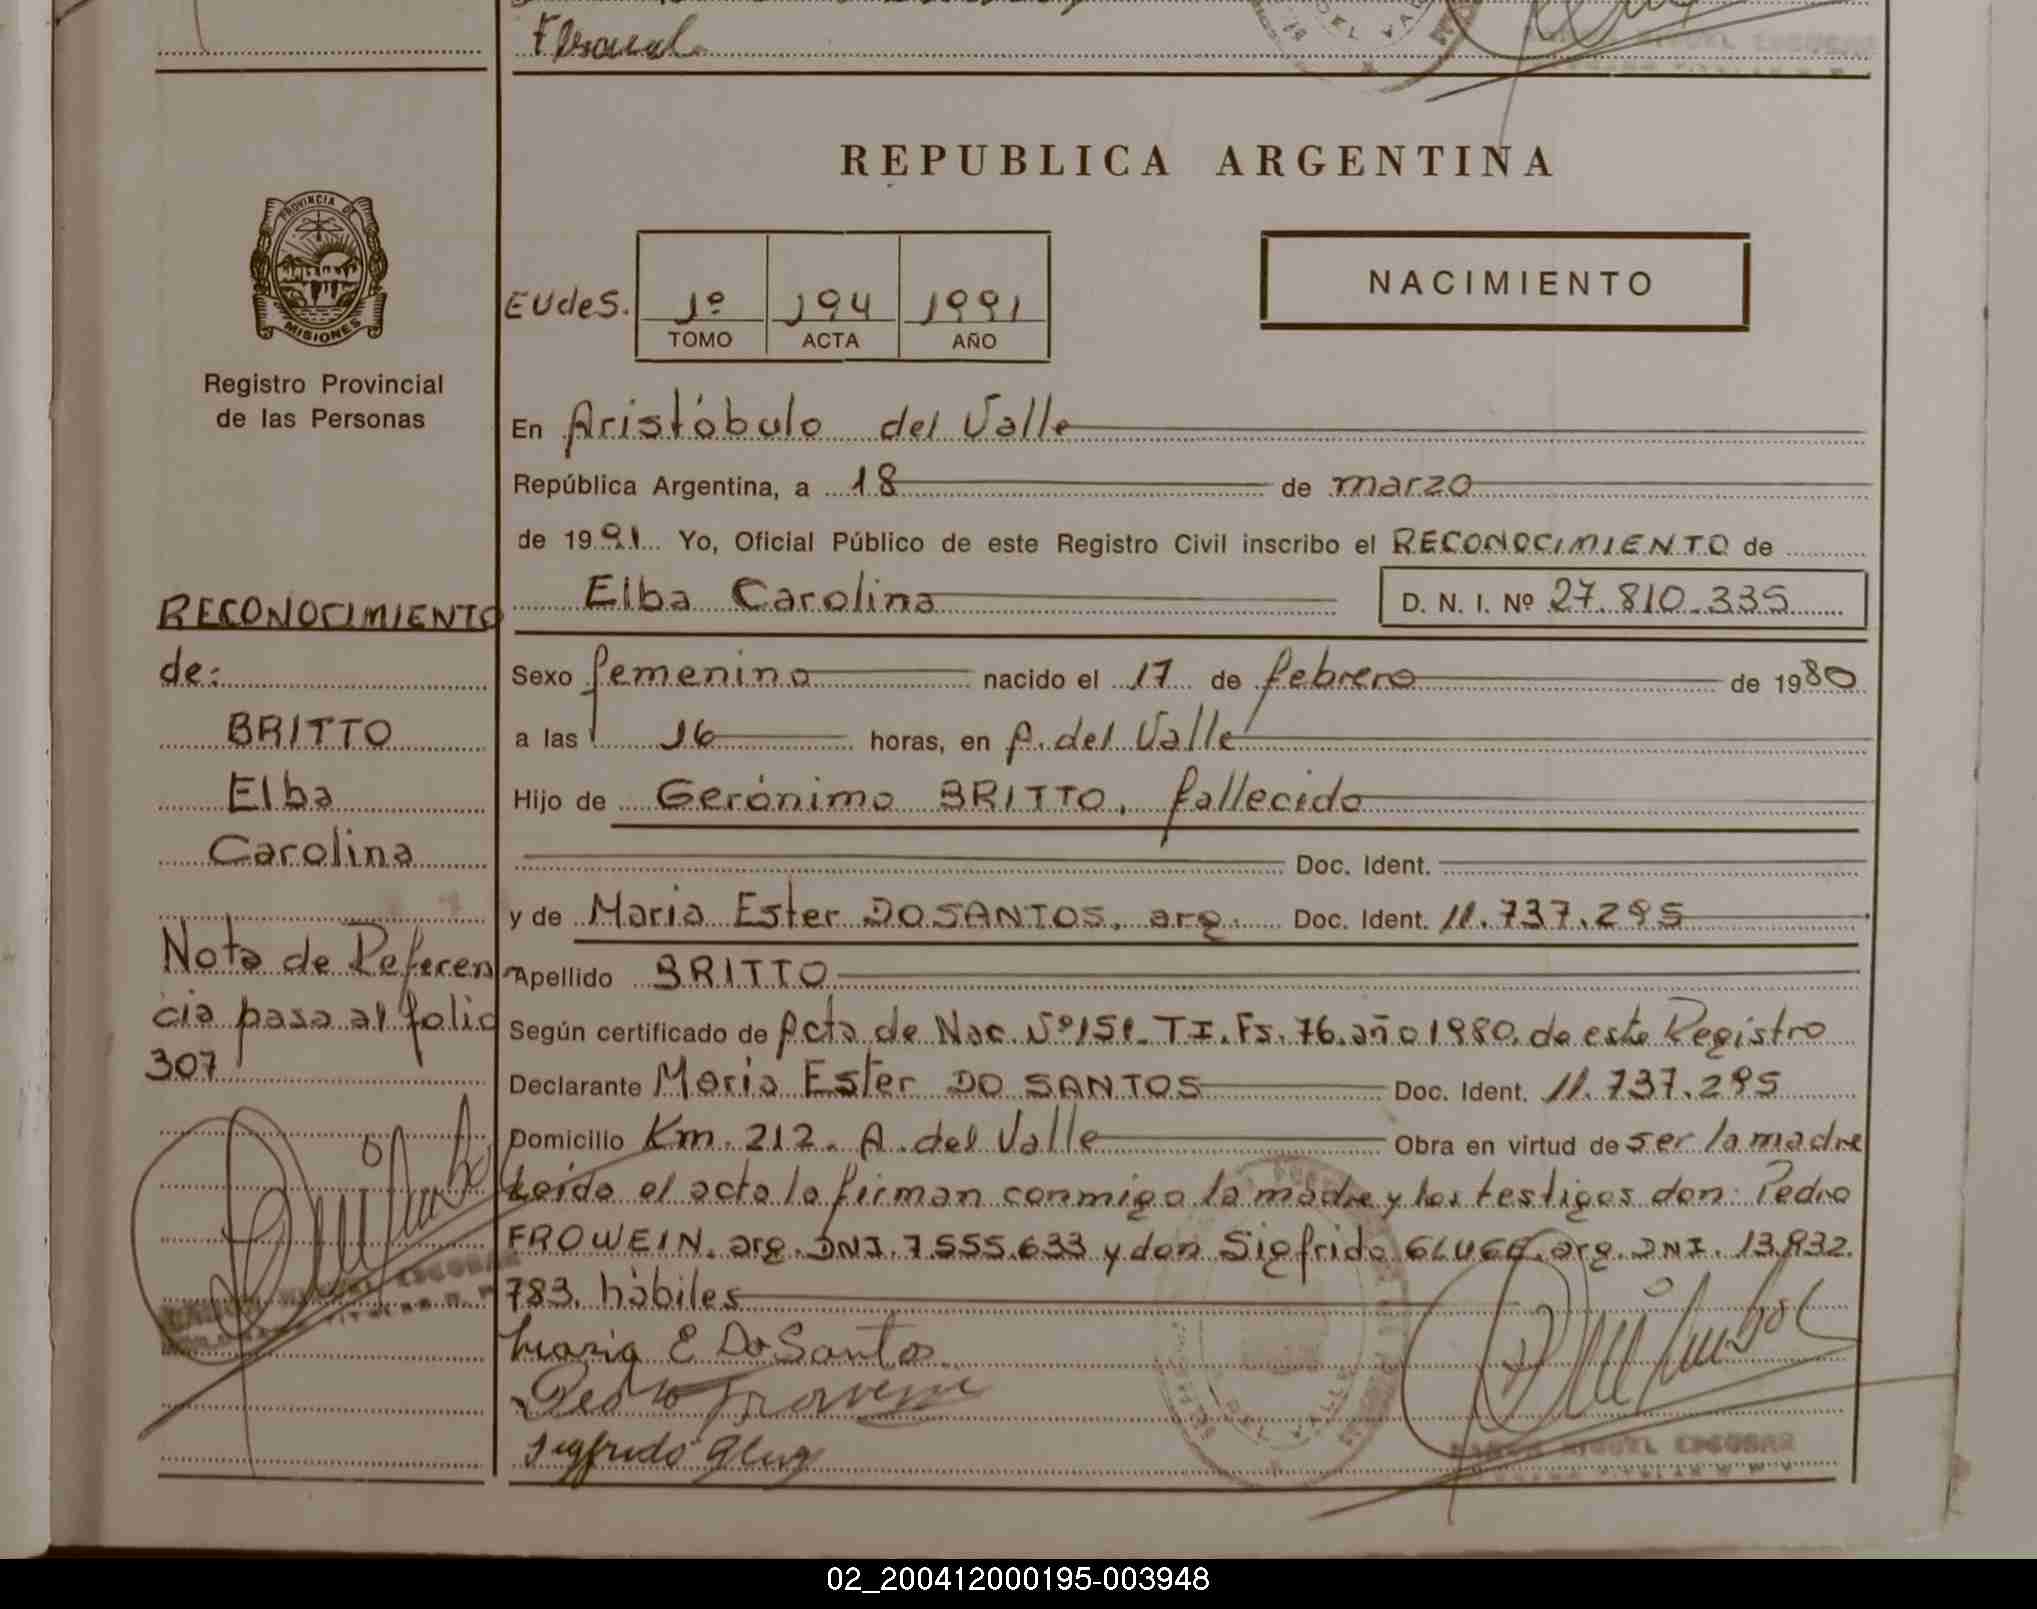 REPUBLICA ARGENTINA
PROVINCIA DE
MISIONES
Registro Provincial
de las Personas
EUdes. 1º 194 1991
TOMO ACTA AÑO
NACIMIENTO
En Aristóbulo del Valle
República Argentina, a 18 de marzo
de 1991 Yo, Oficial Público de este Registro Civil inscribo el RECONOCIMIENTO de
Elba Carolina D. N. I. Nº 27.810.335
Sexo femenino nacido el 17 de febrero de 1980
a las 16 horas, en A. del Valle
Hijo de Gerónimo BRITTO, fallecido
Doc. Ident.
y de Maria Ester DO SANTOS, arg. Doc. Ident. 11.737.295
Apellido BRITTO
Según certificado de Acta de Nac. Nº 151. T I. Fs. 76. año 1980. de este Registro
Declarante Maria Ester DO SANTOS Doc. Ident. 11.737.295
Domicilio Km. 212. A. del Valle Obra en virtud de ser la madre
Leída el acta la firman conmigo la madre y los testigos don: Pedro
FROWEIN. arg. DNI. 7.555.633 y don Sigfrido arg. DNI. 13.932.
783. hábiles
Maria E Do Santos
Pedro
Sigfrido
RAMON MIGUEL ESCOBAR
RECONOCIMIENTO
de:
BRITTO
Elba
Carolina
Nota de Referen
cia pasa al folio
307
02_200412000195-003948